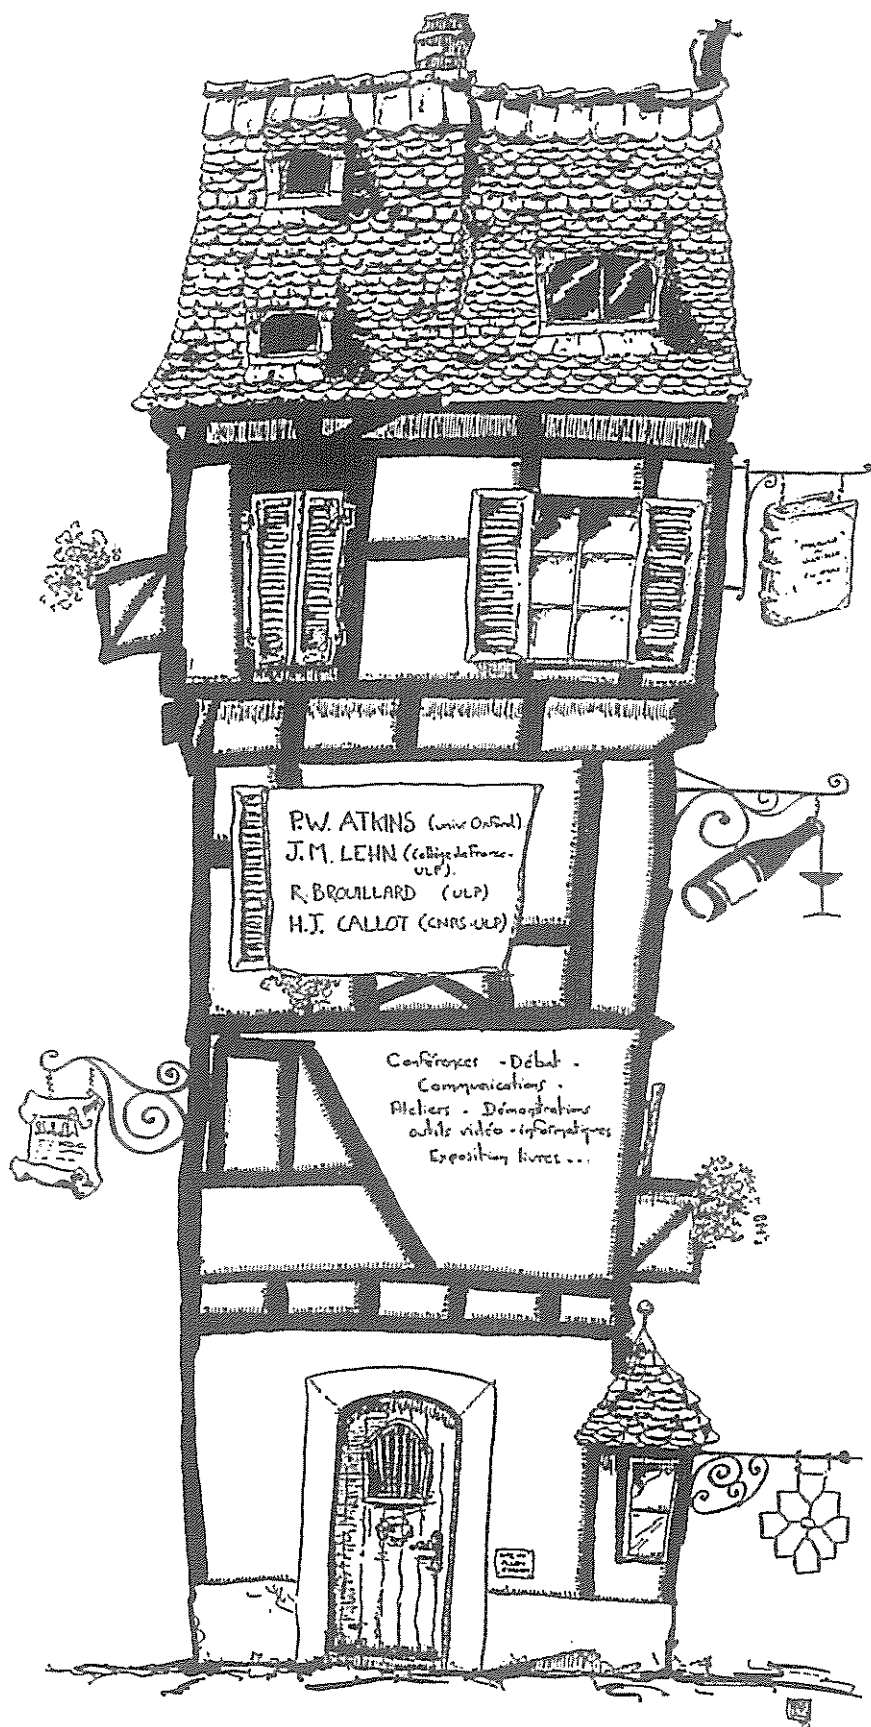 P.W. ATKINS (univ Oxford)
J.M. LEHN (Collège de France-
ULP).
R. BROUILLARD (ULP)
H.J. CALLOT (CNRS-ULP)
Conférences - Débat -
Communications -
Ateliers - Démonstrations
outils vidéo - informatiques
Exposition livres ...